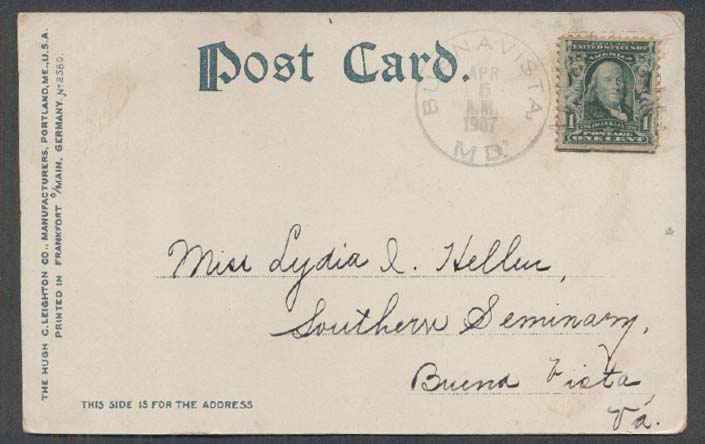 THE HUGH C. LEIGHTON CO., MANUFACTURERS, PORTLAND, ME., U.S.A.
PRINTED IN FRANKFORT o/MAIN, GERMANY. No 2560.
Post Card.
BUENA VISTA
APR
5
A.M.
1907
MD.
UNITED STATES OF
AMERICA
1 1
POSTAGE
ONE CENT
Miss Lydia I. Heller,
Southern Seminary,
Buena Vista
Va.
THIS SIDE IS FOR THE ADDRESS